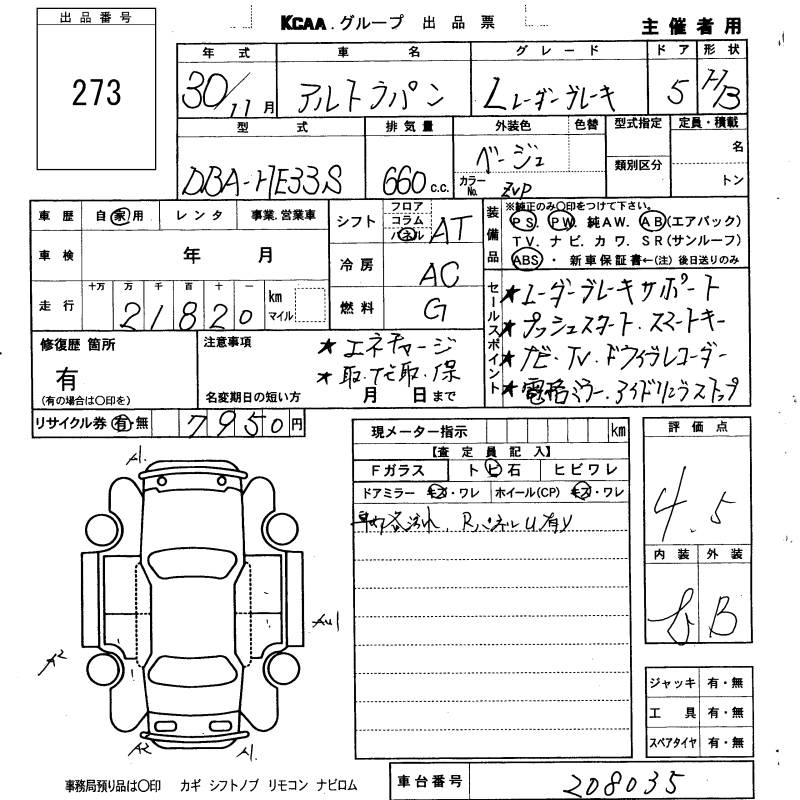 出品番号
273
KCAA.グループ 出品票
主催者用
年式 車名 グレード ドア 形状
30/11月 アルトラパン Lレーダーブレーキ 5 H/B
型式 排気量 外装色 色替 型式指定 定員・積載
類別区分
DBA-HE33S 660c.c. ベージュ 名
カラーNo. ZVP トン
車歴 自家用 レンタ 事業.営業車
シフト フロア コラム パネル AT
装備品 ※純正のみ○印をつけて下さい。
PS. PW. 純AW. AB(エアバック)
TV. ナビ. カワ. SR(サンルーフ)
ABS・新車保証書←(注)後日送りのみ
車検 年 月
冷房 AC
走行 十万 万 千 百 十 一 km マイル
21820
燃料 G
セールスポイント
★レーダーブレーキサポート
★プッシュスタート.スマートキー
★ナビ・TV.ドライブレコーダー
★電格ミラー.アイドリングストップ
修復歴 箇所
有
(有の場合は○印を)
注意事項
★エネチャージ
★取.ナビ取.保
名変期日の短い方 月 日まで
リサイクル券 有・無 7950円
現メーター指示 km
【査定員記入】
Fガラス トビ石 ヒビワレ
ドアミラー キズ・ワレ ホイール(CP) キズ・ワレ
R.パネルU有り
評価点
4.5
内装 外装
B
A1.
A2
A2
A1.
ジャッキ 有・無
工具 有・無
スペアタイヤ 有・無
事務局預り品は○印 カギ シフトノブ リモコン ナビロム
車台番号 208035